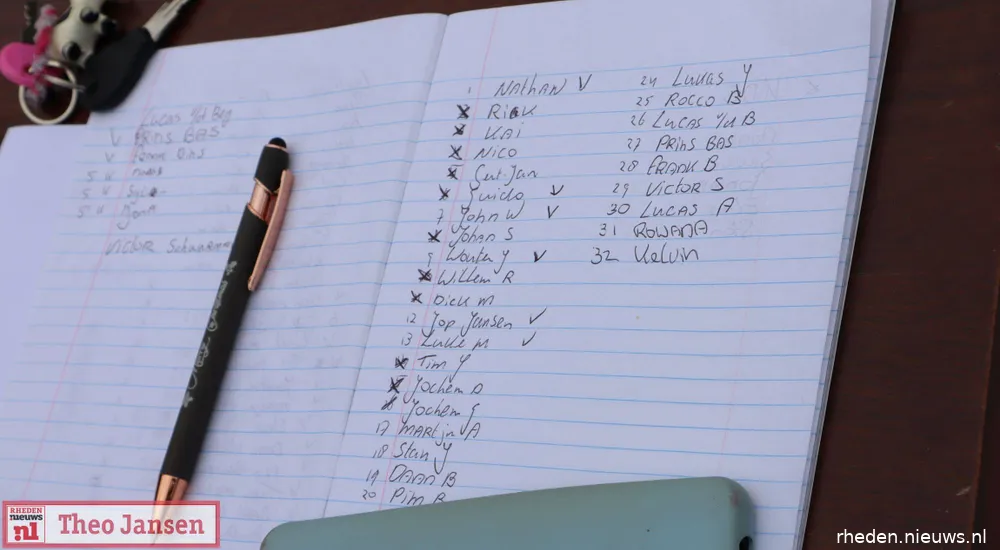 Lucas
V PRINS BAS
V
5 V
5 V
5 V
VICTOR
1 NATHAN V
RICK
KAI
NICO
Gert-Jan
Guido V
7 John W V
Johan S
9 Wouter Y V
Willem R
DICK M
12 Jop Jansen V
13 Luuc M V
Tim Y
Jochem D
Jochem G
17 MARtijn A
18 Stan Y
19 DAAN B
20 Pim B
24 LUKAS Y
25 ROCCO B
26 LUCAS V/d B
27 PRINS BAS
28 FRANK B
29 VICTOR S
30 LUCAS A
31 ROWANA
32 Kelvin
RHEDEN
NIEUWS
.nl
Theo Jansen
rheden.nieuws.nl